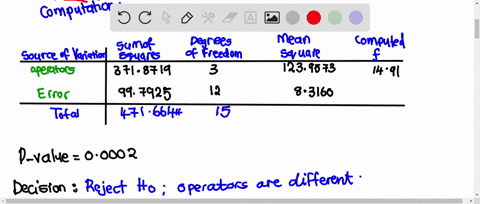 Computation:
Source of Variation Sum of Squares Degrees of Freedom Mean Square Computed f
operators 371.8719 3 123.9573 14.91
Error 99.7925 12 8.3160
Total 471.6644 15
P-value = 0.0002
Decision : Reject Ho ; operators are different.